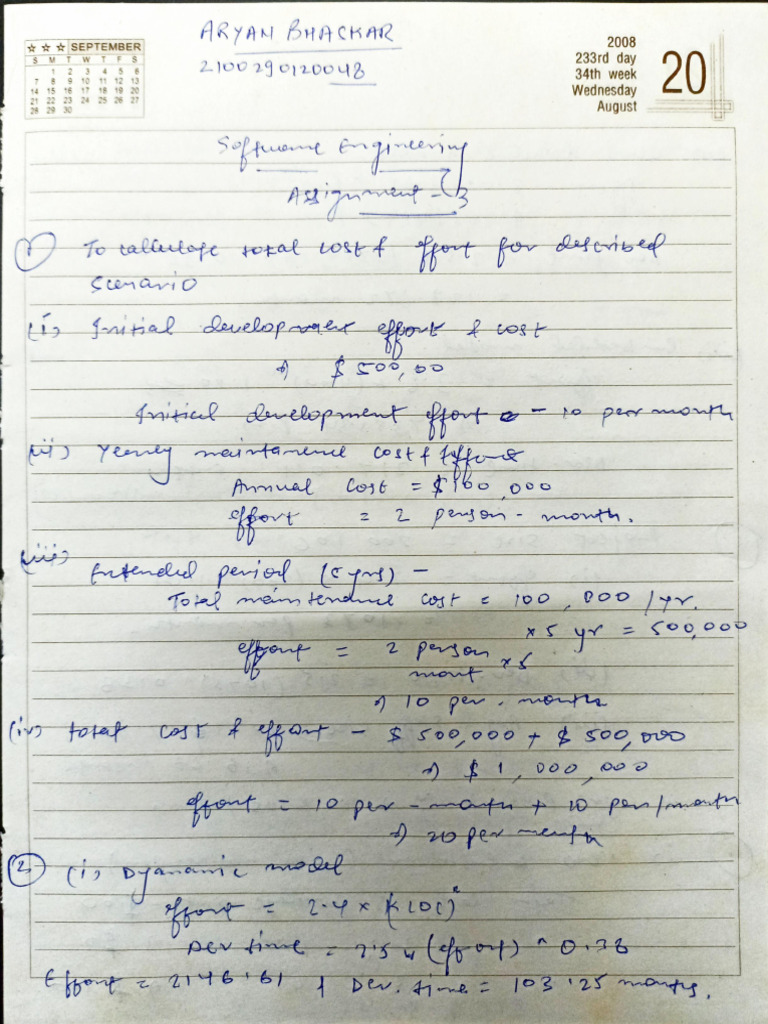 ARYAN BHACKAR
2100290120048
☆ ☆ ☆ SEPTEMBER
S M T W T F S
1 2 3 4 5 6
7 8 9 10 11 12 13
14 15 16 17 18 19 20
21 22 23 24 25 26 27
28 29 30
2008
233rd day
34th week
Wednesday
August
20
Software Engineering
Assignment - 3
① To calculate total cost & effort for described
scenario
(i) Initial development effort & cost
⇒ $ 500,00
Initial development effort - 10 per month
(ii) Yearly maintanence cost & effort
Annual Cost = $ 100,000
effort = 2 person - month.
(iii) Extended period (5 yrs) -
Total maintenance cost = 100,000 / yr.
x 5 yr = 500,000
effort = 2 person
mont x 5
⇒ 10 per. months
(iv) total cost & effort - $ 500,000 + $ 500,000
⇒ $ 1,000,000
effort = 10 per - month + 10 per/month
⇒ 20 per month
② (i) Dyanamic model
effort = 2.4 x (KLOC)
Dev time = 2.5 x (effort) ^ 0.38
Effort = 2146.61 & Dev. time = 103.25 months.